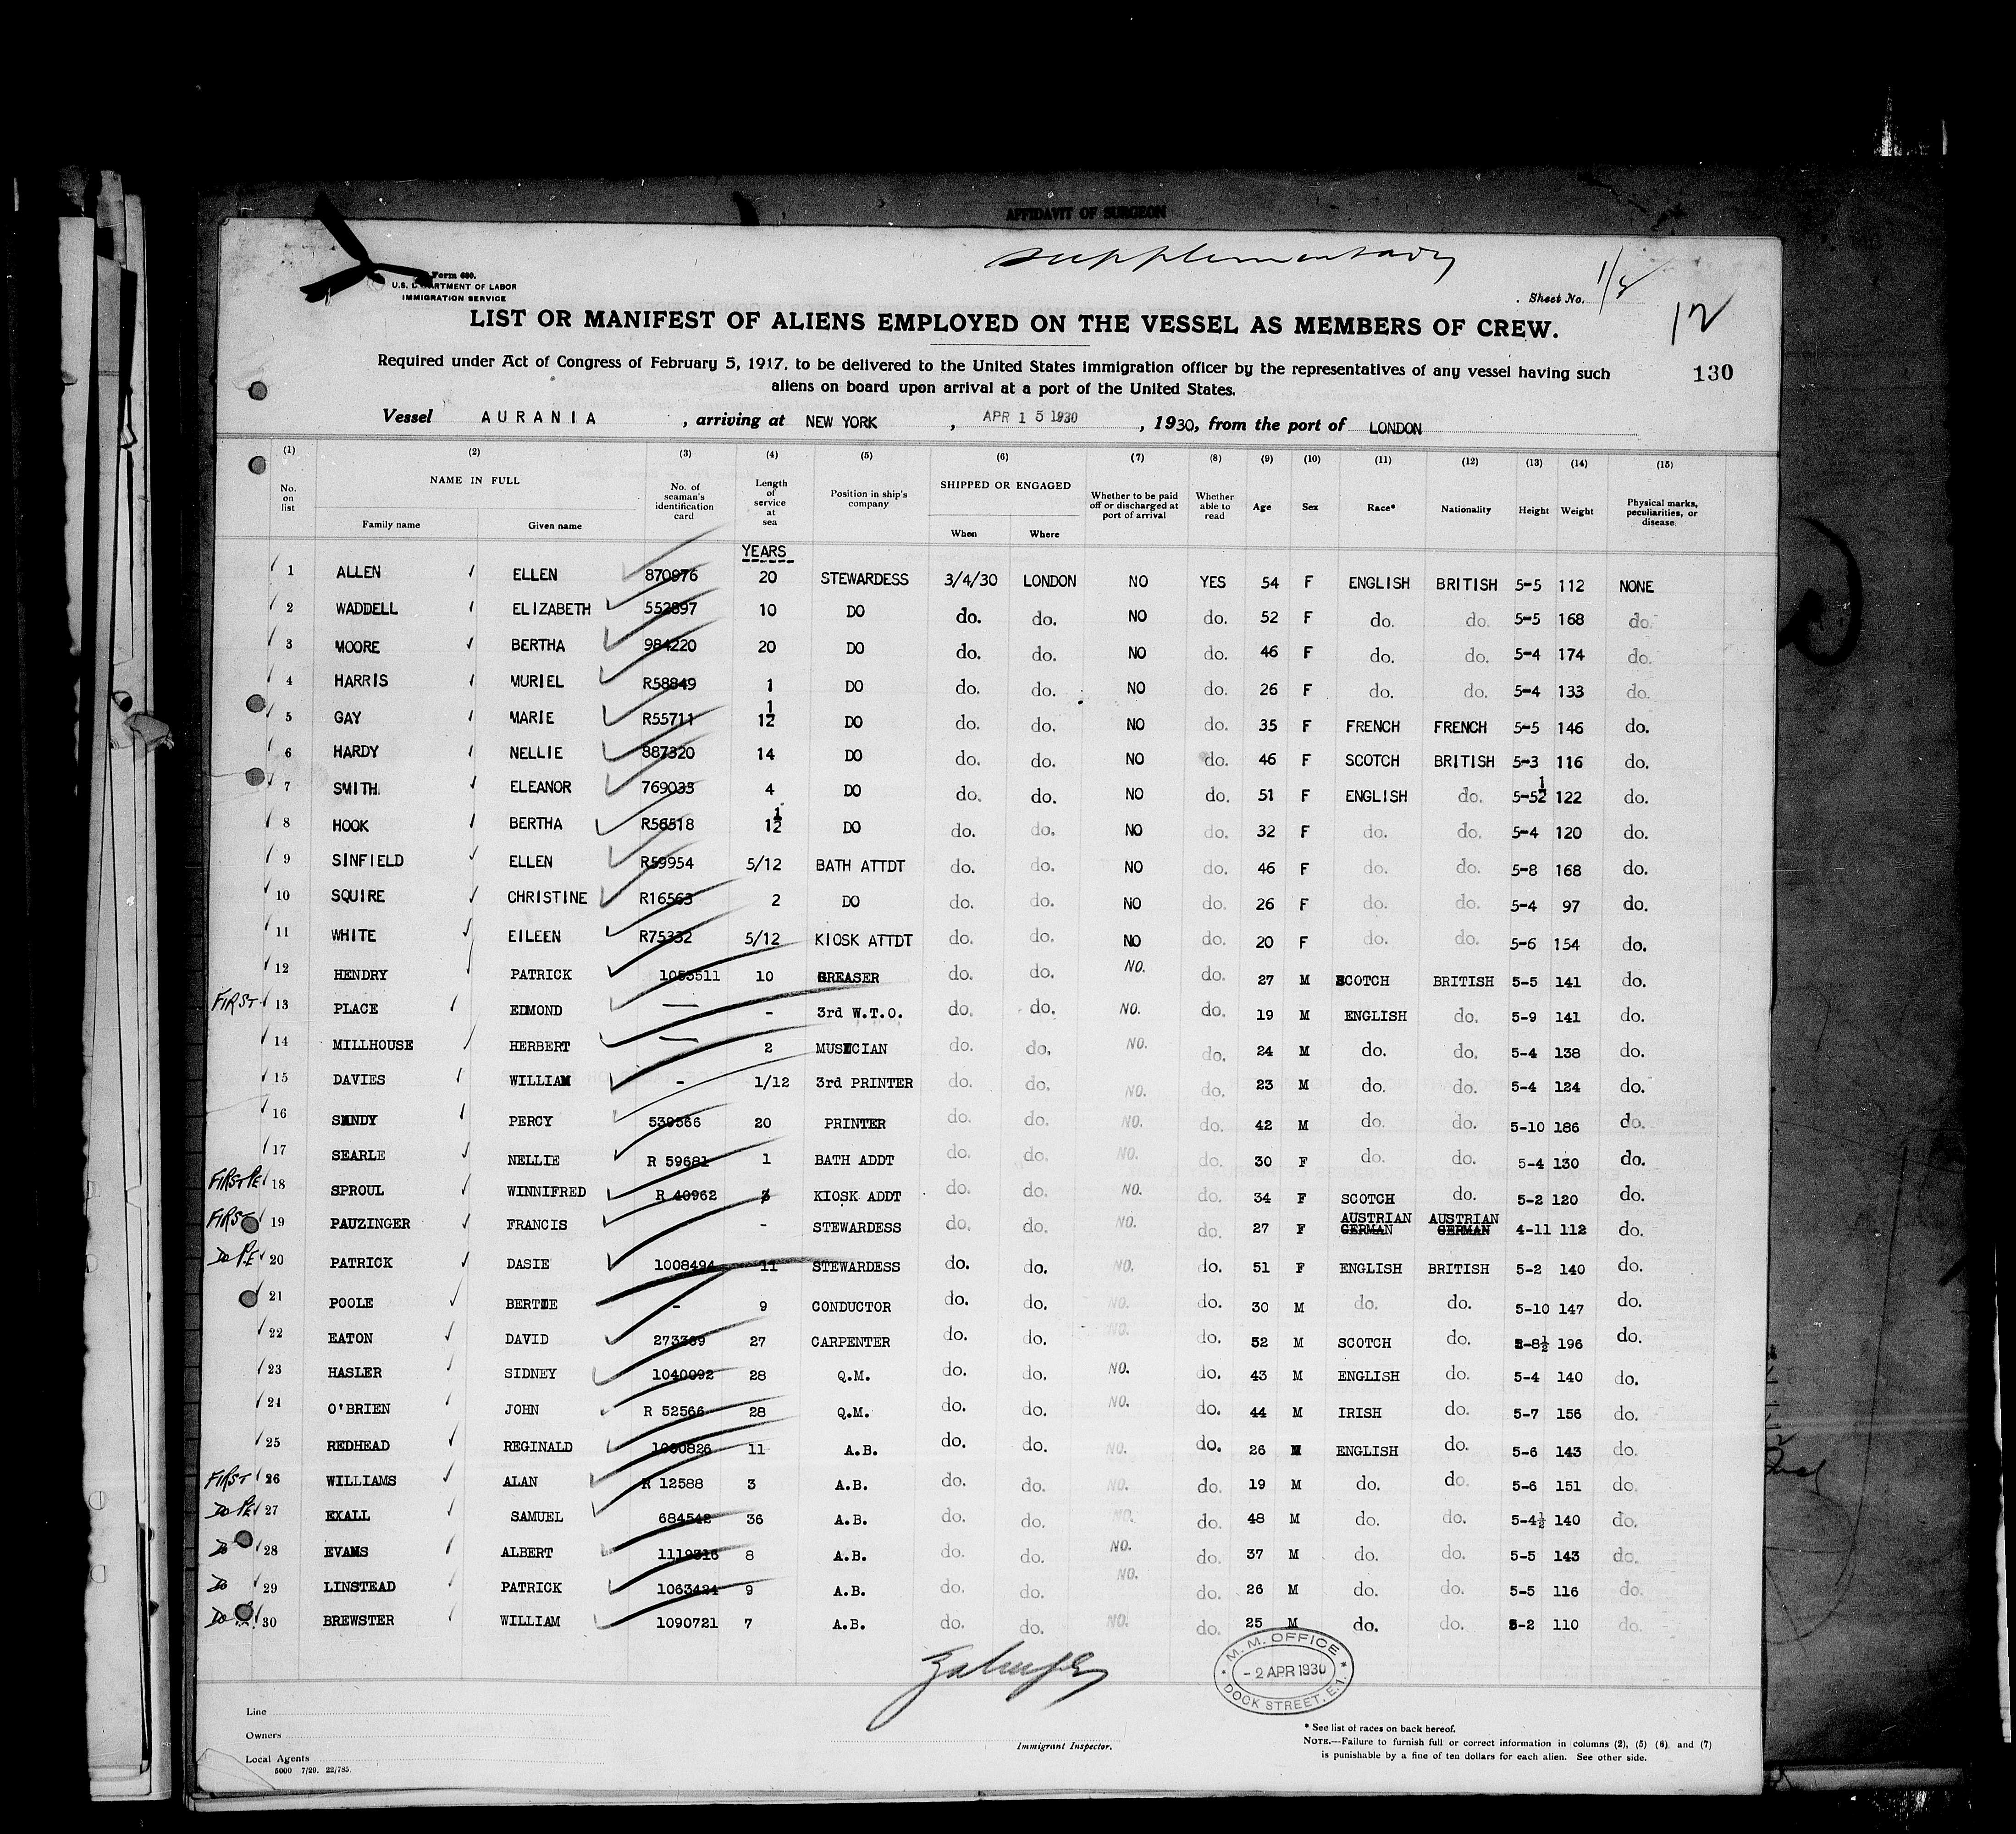 AFFIDAVIT OF SURGEON
supplementary
Form 680.
U.S. DEPARTMENT OF LABOR
IMMIGRATION SERVICE
Sheet No.
LIST OR MANIFEST OF ALIENS EMPLOYED ON THE VESSEL AS MEMBERS OF CREW.
12
Required under Act of Congress of February 5, 1917, to be delivered to the United States immigration officer by the representatives of any vessel having such
aliens on board upon arrival at a port of the United States.
130
Vessel AURANIA, arriving at NEW YORK, APR 15 1930, 1930, from the port of LONDON
(1) (2) (3) (4) (5) (6) (7) (8) (9) (10) (11) (12) (13) (14) (15)
No. on list NAME IN FULL Family name Given name No. of seaman's identification card Length of service at sea Position in ship's company SHIPPED OR ENGAGED When Where Whether to be paid off or discharged at port of arrival Whether able to read Age Sex Race* Nationality Height Weight Physical marks, peculiarities, or disease
YEARS
1 ALLEN ELLEN 870976 20 STEWARDESS 3/4/30 LONDON NO YES 54 F ENGLISH BRITISH 5-5 112 NONE
2 WADDELL ELIZABETH 552897 10 DO do. do. NO do. 52 F do. do. 5-5 168 do.
3 MOORE BERTHA 984220 20 DO do. do. NO do. 46 F do. do. 5-4 174 do.
4 HARRIS MURIEL R58849 1 DO do. do. NO do. 26 F do. do. 5-4 133 do.
5 GAY MARIE R55711 1/12 DO do. do. NO do. 35 F FRENCH FRENCH 5-5 146 do.
6 HARDY NELLIE 887320 14 DO do. do. NO do. 46 F SCOTCH BRITISH 5-3 116 do.
7 SMITH ELEANOR 769033 4 DO do. do. NO do. 51 F ENGLISH do. 5-5½ 122 do.
8 HOOK BERTHA R56518 1/12 DO do. do. NO do. 32 F do. do. 5-4 120 do.
9 SINFIELD ELLEN R59954 5/12 BATH ATTDT do. do. NO do. 46 F do. do. 5-8 168 do.
10 SQUIRE CHRISTINE R16563 2 DO do. do. NO do. 26 F do. do. 5-4 97 do.
11 WHITE EILEEN R75332 5/12 KIOSK ATTDT do. do. NO do. 20 F do. do. 5-6 154 do.
12 HENDRY PATRICK 1053511 10 GREASER do. do. NO. do. 27 M SCOTCH BRITISH 5-5 141 do.
FIRST 13 PLACE EDMOND — - 3rd W.T.O. do. do. NO. do. 19 M ENGLISH do. 5-9 141 do.
14 MILLHOUSE HERBERT — 2 MUSICIAN do. do. NO. do. 24 M do. do. 5-4 138 do.
15 DAVIES WILLIAM - 1/12 3rd PRINTER do. do. NO. do. 23 M do. do. 5-4 124 do.
16 SANDY PERCY 539566 20 PRINTER do. do. NO. do. 42 M do. do. 5-10 186 do.
17 SEARLE NELLIE R 59681 1 BATH ADDT do. do. NO. do. 30 F do. do. 5-4 130 do.
FIRST PE 18 SPROUL WINNIFRED R 40962 3 KIOSK ADDT do. do. NO. do. 34 F SCOTCH do. 5-2 120 do.
FIRST 19 PAUZINGER FRANCIS - STEWARDESS do. do. NO. do. 27 F AUSTRIAN GERMAN AUSTRIAN GERMAN 4-11 112 do.
Do PE 20 PATRICK DASIE 1008494 11 STEWARDESS do. do. NO. do. 51 F ENGLISH BRITISH 5-2 140 do.
21 POOLE BERTIE - 9 CONDUCTOR do. do. NO. do. 30 M do. do. 5-10 147 do.
22 EATON DAVID 273369 27 CARPENTER do. do. NO. do. 52 M SCOTCH do. 5-8½ 196 do.
23 HASLER SIDNEY 1040092 28 Q.M. do. do. NO. do. 43 M ENGLISH do. 5-4 140 do.
24 O'BRIEN JOHN R 52566 28 Q.M. do. do. NO. do. 44 M IRISH do. 5-7 156 do.
25 REDHEAD REGINALD 1060826 11 A.B. do. do. NO. do. 26 M ENGLISH do. 5-6 143 do.
FIRST 26 WILLIAMS ALAN R 12588 3 A.B. do. do. NO. do. 19 M do. do. 5-6 151 do.
Do PE 27 EXALL SAMUEL 684542 36 A.B. do. do. NO. do. 48 M do. do. 5-4½ 140 do.
Do 28 EVANS ALBERT 1119316 8 A.B. do. do. NO. do. 37 M do. do. 5-5 143 do.
Do 29 LINSTEAD PATRICK 1063424 9 A.B. do. do. NO. do. 26 M do. do. 5-5 116 do.
Do 30 BREWSTER WILLIAM 1090721 7 A.B. do. do. NO. do. 25 M do. do. 5-2 110 do.
M. M. OFFICE
- 2 APR 1930
DOCK STREET, E.1.
Line
Owners
Local Agents
5000 7/29. 22/785.
Immigrant Inspector.
* See list of races on back hereof.
NOTE.—Failure to furnish full or correct information in columns (2), (5) (6) and (7)
is punishable by a fine of ten dollars for each alien. See other side.